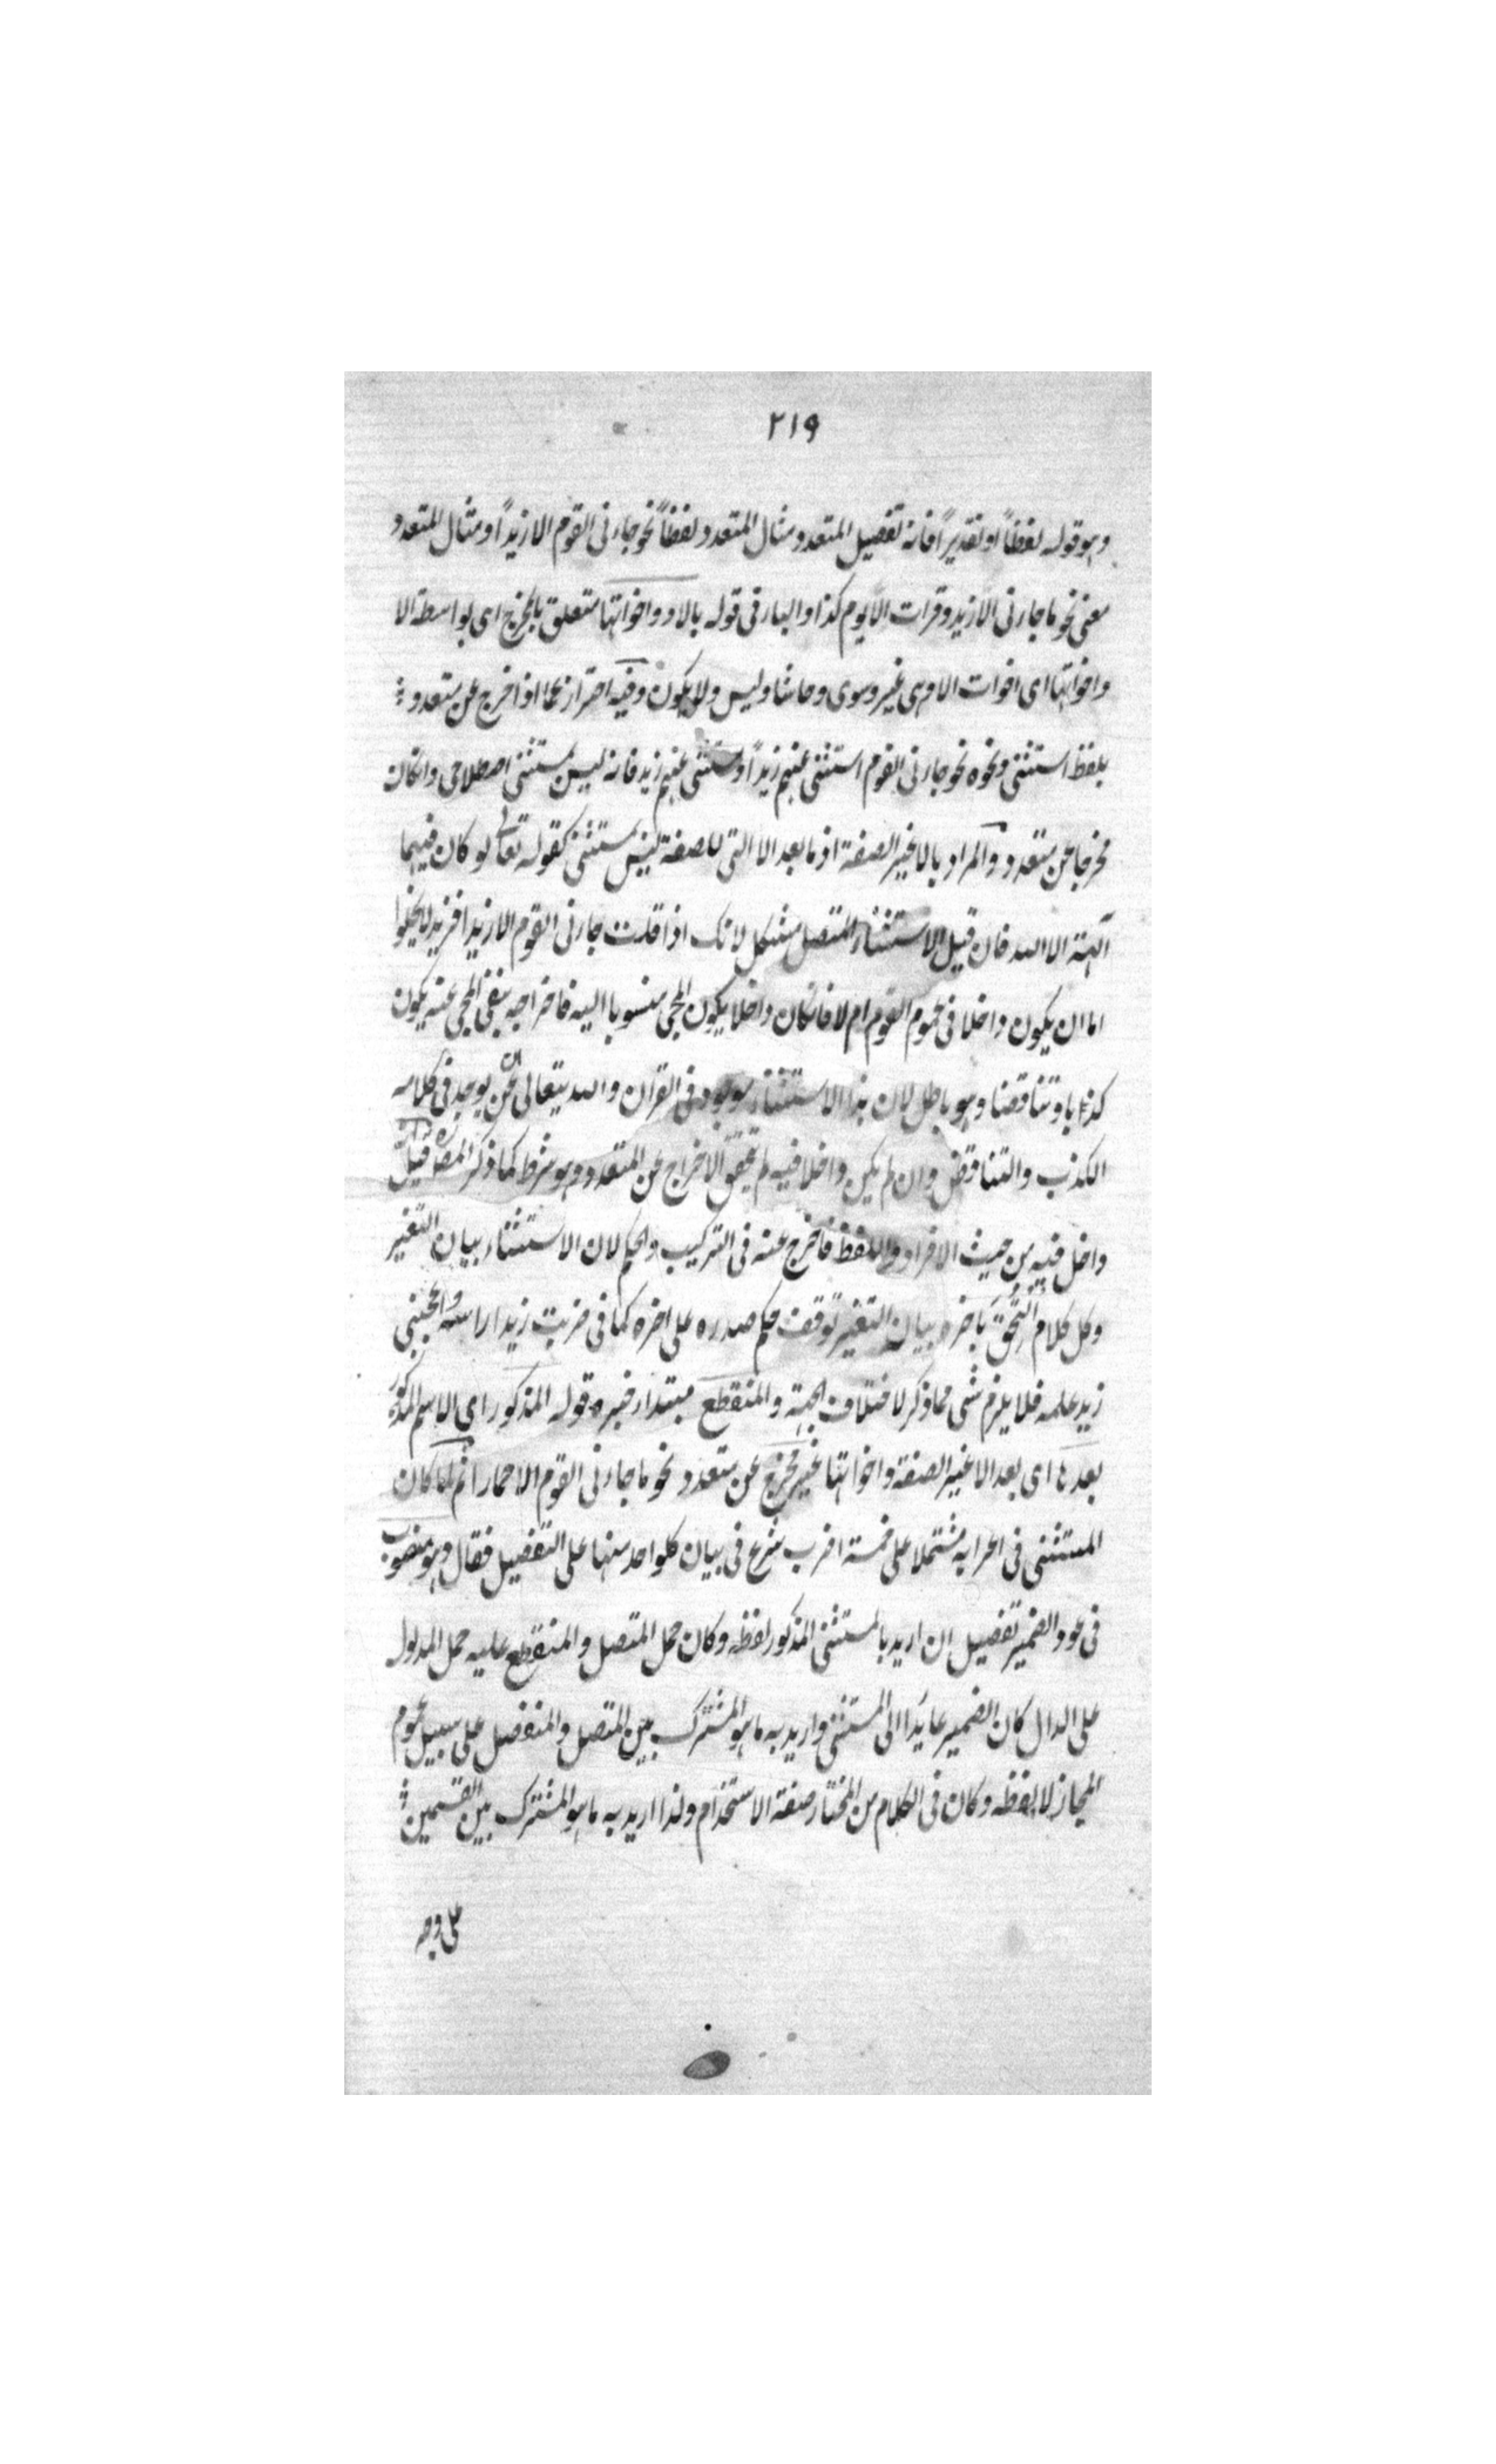 ٢١٩
وهو قوله لفظاً او تقديراً فانه تفصيل المتعدد ومثال المتعدد لفظاً نحو جاءنى القوم الا زيداً ومثال المتعدد
معنى نحو ما جاءنى الا زيد وقرات الا يوم كذا والباء فى قوله بالا واخواتها متعلق بالمخرج اى بواسطة الا
واخواتها اى اخوات الا وهى غير وسوى وحاشا وليس ولا يكون وفيه احتراز عما اذا اخرج عن متعدد
بلفظ استثنى ونحوه نحو جاءنى القوم استثنى عنهم زيداً ويستثنى عنهم زيد فانه ليس بمستثنى اصطلاحى وانكان
مخرجا عن متعدد والمراد بالا غير الصفة اذ ما بعد الا التى للصفة ليس بمستثنى كقوله تعالى لو كان فيهما
آلهة الا الله فان قيل الاستثناء المتصل مشكل لانك اذا قلت جاءنى القوم الا زيدا فزيد لا يخلوا
اما ان يكون داخلا فى عموم القوم ام لا فانكان داخلا يكون المجى منسوبا اليه فاخراجه بنفى المجى عنه يكون
كذبا وتناقضا وهو باطل لان هذا الاستثناء موجود فى القرآن والله يتعالى عن ان يوجد فى كلامه
الكذب والتناقض وان لم يكن داخلا فيه لم يتحقق الاخراج عن المتعدد وهو شرط كما ذكر المص قيل
داخل فيه من حيث الافراد واللفظ فاخرج عنه فى التركيب والحكم لان الاستثناء بيان التغير
وكل كلام التحق باخره بيان التغير توقف حكم صدره على اخره كما فى ضربت زيدا راسه واعجبنى
زيد علمه فلا يلزم شى مما ذكر لاختلاف الجهة والمنقطع مبتداء خبره قوله المذكور اى الاسم المذكور
بعدها اى بعد الا غير الصفة واخواتها غير مخرج عن متعدد نحو ما جاءنى القوم الا حمارا ثم لما كان
المستثنى فى اعرابه مشتملا على خمسة اضرب شرع فى بيان كلواحد منها على التفصيل فقال وهو منصوب
فى عود الضمير تفصيل ان اريد بالمستثنى المذكور لفظه وكان حمل المتصل والمنقطع عليه حمل المدلول
على الدال كان الضمير عايدا الى المستثنى واريد به ما هو المشترك بين المتصل والمنفصل على سبيل عموم
المجاز لا لفظه وكان فى الكلام من المختار صنعة الاستخدام ولذا اريد به ما هو المشترك بين القسمين
على وجه